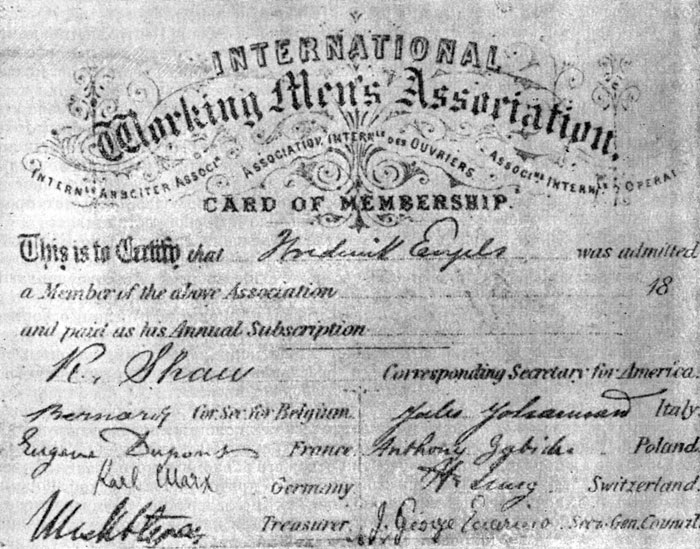 INTERNATIONAL
Working Men's Association.
INTERNLE ARBEITER ASSOCN ASSOCIATION INTERNLE DES OUVRIERS. ASSOCNE INTERNLE OPERAI
CARD OF MEMBERSHIP.
This is to Certify that Frederick Engels was admitted
a Member of the above Association 18
and paid as his Annual Subscription
R. Shaw Corresponding Secretary for America.
Bernard Cor. Sec. for Belgium. Jules Johannard Italy.
Eugene Dupont France. Anthony Zabicki Poland.
Karl Marx Germany H. Jung Switzerland.
Treasurer. J. George Eccarius Secy. Gen. Council.